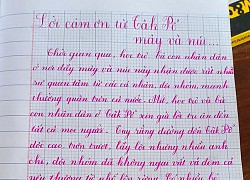 Lời cảm ơn từ Cắk Pế
mây và núi...
Thời gian qua, học trò, bà con nhân dân
ở nơi đầy mây và núi này nhận được rất nhiều
sự quan tâm từ các cá nhân, đoàn, nhóm mạnh
thường quân trên cả nước. Nhớ, học trò và bà
con nhân dân ở Cắk Pế xin gửi lời tri ân đến
tất cả mọi người. Tuy rằng đường đến Cắk Pế
dốc cao, trơn trượt, lầy lội nhưng nhiều anh
chị, đội nhóm đã không ngại vất vả đem cả
yêu thương từ phố lên rừng.